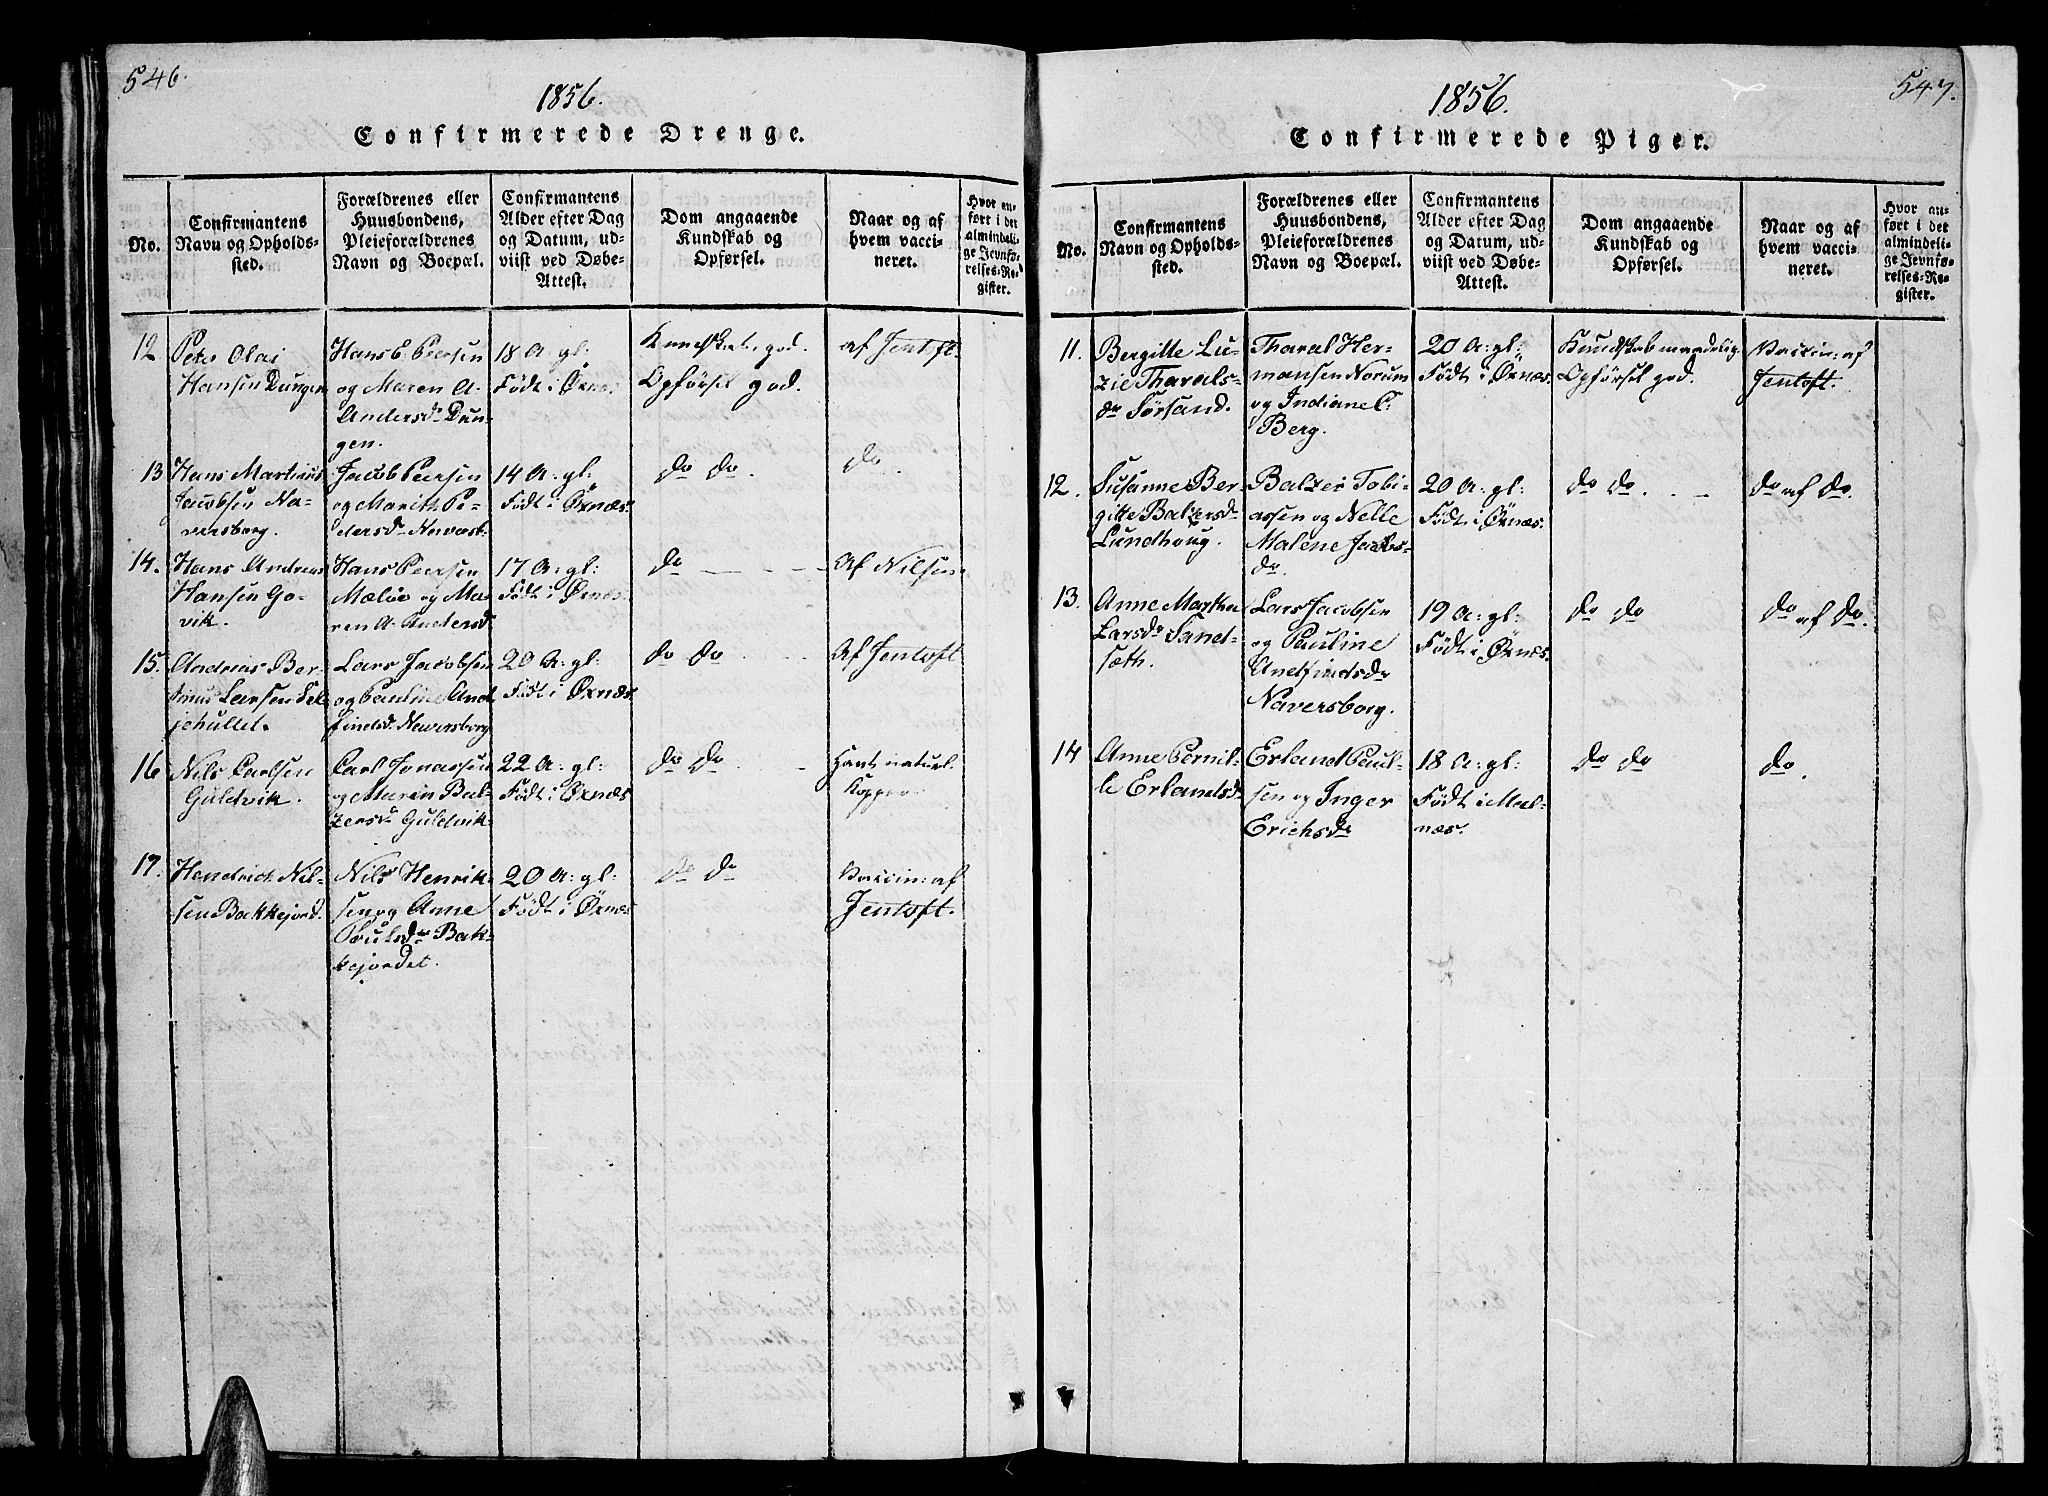 546.
1856.
Confirmerede Drenge.
No.
Confirmantens
Navn og Opholds-
sted.
Forældrenes eller
Huusbondens,
Pleieforældrenes
Navn og Boepæl.
Confirmantens
Alder efter Dag
og Datum, ud-
viist ved Døbe-
Attest.
Dom angaaende
Kundskab og
Opførsel.
Naar og af
hvem vacci-
neret.
Hvor an-
ført i det
almindeli-
ge Jevnfø-
relses-Re-
gister.
12
Peter Olai
Hansen Dungen
Hans E. Peersen
og Maren A.
Andersdr Dun-
gen.
18 A. gl:
Født i Øxnæs
Kundskab god.
Opførsel god.
af Jentoft.
13
Hans Martinus
Jacobsen Na-
versborg.
Jacob Peersen
og Marith Pe-
dersdr Naversb.
14 A. gl:
Født i Øxnæs.
do do
do.
14.
Hans Andreas
Hansen Ga-
vik.
Hans Peersen
Mæløe og Ma-
ren A. Andersd.
17 A. gl:
Født i Øxnæs
do
Af Nilsen
15.
Andreas Ber-
Larsen Sel-
jehullet.
Lars Jacobsen
og Pauline And
findsd. Naversborg
20 A. gl:
Født i Øxnæs
do do
Af Jentoft
16
Nils Carlsen
Guldvik.
Carl Jonassen
og Maren Bal-
zersdr Guldvik
22 A. gl:
Født i Øxnæs
do do
Havt naturl.
Kopper
17.
Hendrich Nil-
sen Bakkejord.
Nils Henrik-
sen og Anne
Poulsdr Bak-
kejordet.
20 A. gl:
Født i Øxnæs
do do
Vaccin: af
Jentoft.
547.
1856.
Confirmerede Piger.
No.
Confirmantens
Navn og Opholds-
sted.
Forældrenes eller
Huusbondens,
Pleieforældrenes
Navn og Boepæl.
Confirmantens
Alder efter Dag
og Datum, ud-
viist ved Døbe-
Attest.
Dom angaaende
Kundskab og
Opførsel.
Naar og af
hvem vacci-
neret.
Hvor an-
ført i det
almindeli-
ge Jevnfø-
relses-Re-
gister.
11.
Bergitte Lu-
zie Tharals-
dr Sørsand.
Tharal Her-
mansen Norum
og Indiane C.
Berg.
20 A: gl:
Født i Øxnæs.
Kundskab maadelig
Opførsel god.
Vaccin: af
Jentoft.
12.
Susanne Ber-
gitte Balzersd.
Lundhoug.
Balzer Tobi-
assen og Nelle
Malene Jacobs-
dr.
20 A: gl:
Født i Øxnæs.
do do.
do af do.
13.
Anne Martha
Larsdr Sand-
sæth.
Lars Jacobsen
og Pauline
Andfindsdr
Naversborg.
19 A: gl:
Født i Øxnæs.
do do
do af do.
14
Anne Pernil-
le Erlandsd.
Erland Paul-
sen og Inger
Erichsdr
18 A: gl:
Født i Mal-
næs.
do do
do.